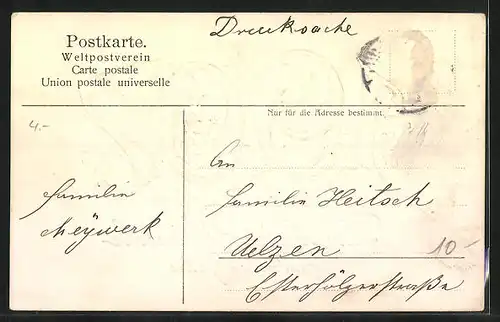 Drucksache
Postkarte.
Weltpostverein
Carte postale
Union postale universelle
Nur für die Adresse bestimmt
4.-
An
Familie
Meÿwerk
Familie Heitsch
Uelzen
10-
Esterholzerstraße